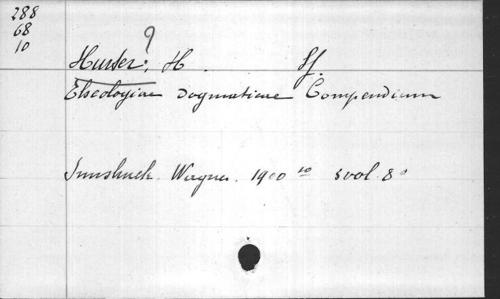 288
68
10
?
Hurter, H. Sf.
Theologiae Dogmaticae Compendium
Innsbruck. Wagner. 1900 10 3 vol. 8°